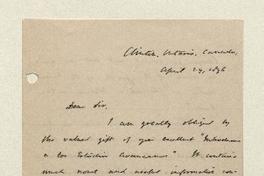 Clinton, Ontario, Canada,
April 24, 1896
Dear Sir,
I am greatly obliged by
the valued gift of your excellent "Introduction
It contains
much novel and useful information con-